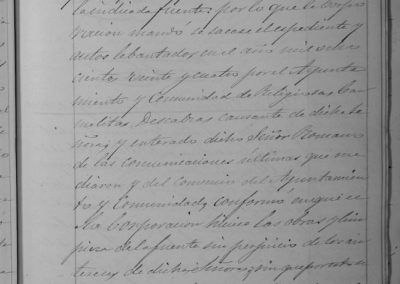 la indicada fuente; por lo que la Corpo
racion mandó se sacase el espediente y
autos lebantados en el año mil ocho
cientos veinte y cuatro por el Ayunta
miento y Comunidad de Religiosas Car
melitas Descalzas causante de dicha Se
ñora; y enterado dicho Señor Romano
de las comunicaciones ultimas que me
diaron y del convenio del Ayuntamien
to y Comunidad, conforma en que es
ta Corporacion hiciese las obras y lim
pieza de la fuente sin perjuicio de los an
tereses de dicha Señora, sin que por esto se